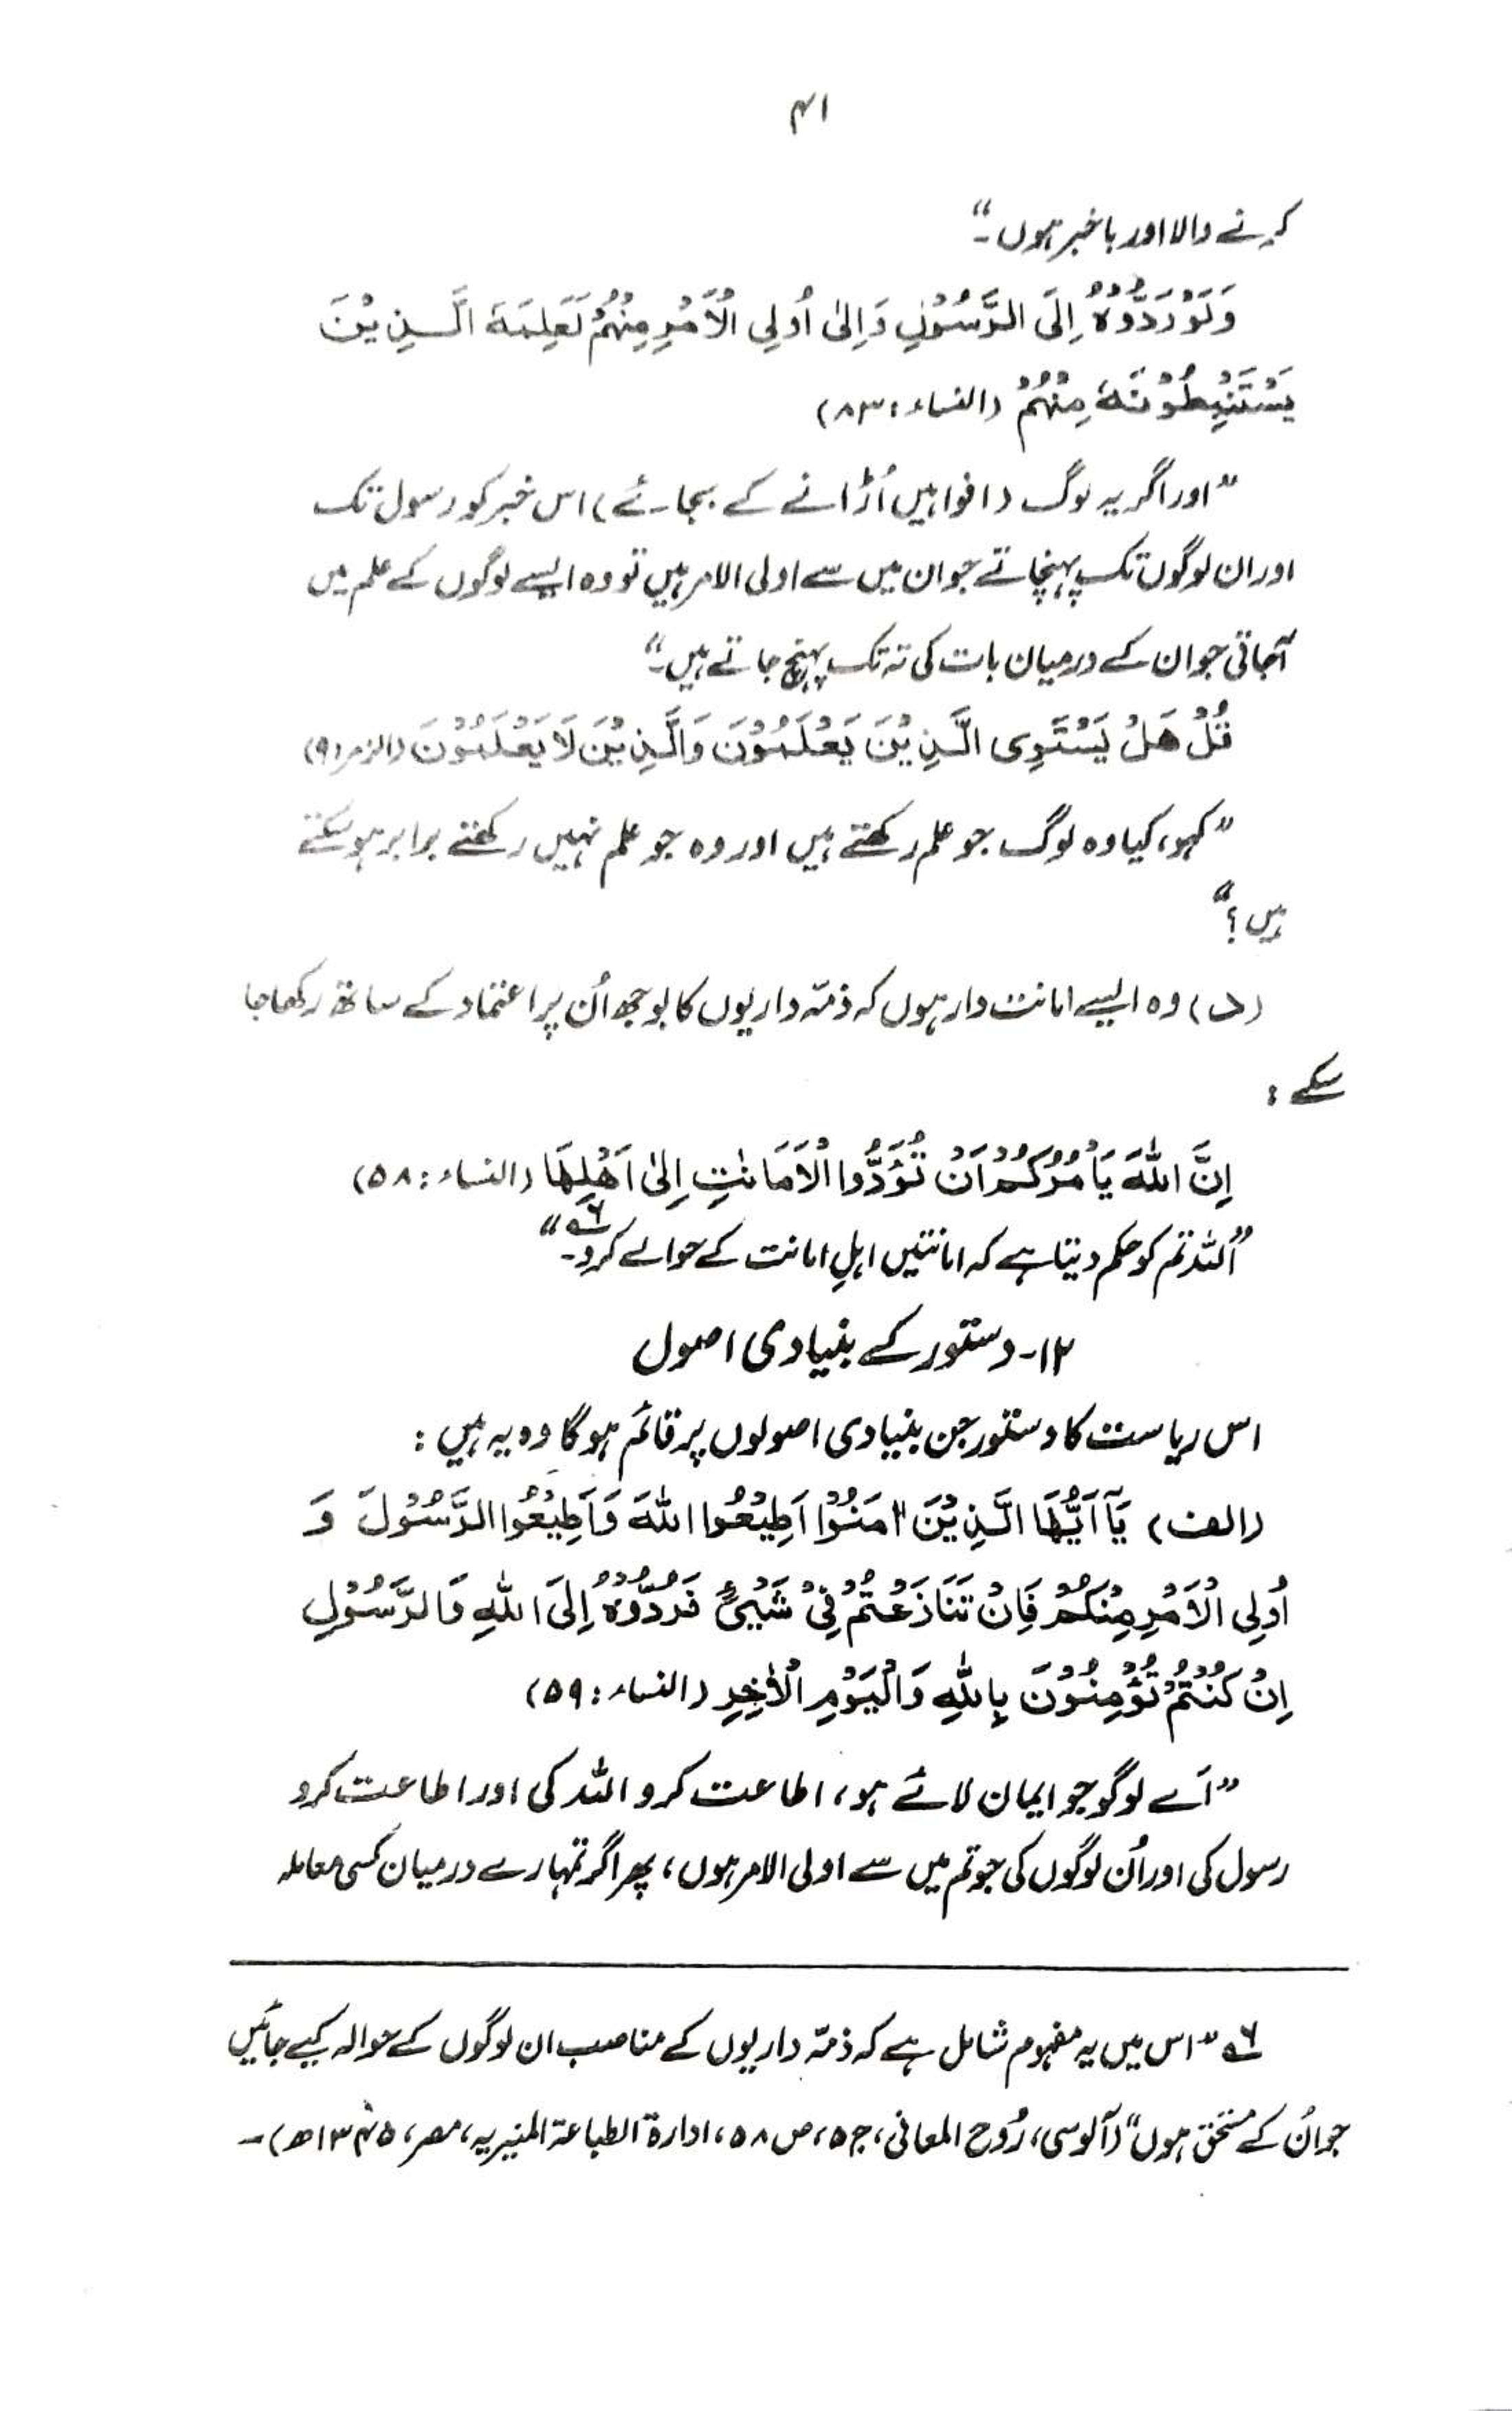 ۴۱
کرنے والا اور باخبر ہوں۔“
وَلَوْ رَدُّوْهُ اِلَی الرَّسُوْلِ وَاِلیٰ اُولِی الْاَمْرِ مِنْهُمْ لَعَلِمَهُ الَّذِیْنَ
یَسْتَنْبِطُوْنَهٗ مِنْهُمْ (النساء: ۸۳)
”اور اگر یہ لوگ (افواہیں اُڑانے کے بجائے) اس خبر کو رسول تک
اور ان لوگوں تک پہنچاتے جو ان میں سے اولی الامر ہیں تو وہ ایسے لوگوں کے علم میں
آجاتی جو ان کے درمیان بات کی تہ تک پہنچ جاتے ہیں۔“
قُلْ هَلْ یَسْتَوِی الَّذِیْنَ یَعْلَمُوْنَ وَالَّذِیْنَ لَا یَعْلَمُوْنَ (الزمر: ۹)
”کہو، کیا وہ لوگ جو علم رکھتے ہیں اور وہ جو علم نہیں رکھتے برابر ہو سکتے
ہیں؟“
(د) وہ ایسے امانت دار ہوں کہ ذمّہ داریوں کا بوجھ اُن پر اعتماد کے ساتھ رکھا جا
سکے:
اِنَّ اللهَ یَاْمُرُکُمْ اَنْ تُؤَدُّوا الْاَمَانٰتِ اِلیٰ اَهْلِهَا (النساء: ۵۸)
”اللہ تم کو حکم دیتا ہے کہ امانتیں اہلِ امانت کے حوالے کرو۔۶؎“
۱۲- دستور کے بنیادی اصول
اس ریاست کا دستور جن بنیادی اصولوں پر قائم ہوگا وہ یہ ہیں:
(الف) یَآ اَیُّهَا الَّذِیْنَ اٰمَنُوْٓا اَطِیْعُوا اللهَ وَاَطِیْعُوا الرَّسُوْلَ وَ
اُولِی الْاَمْرِ مِنْکُمْ فَاِنْ تَنَازَعْتُمْ فِیْ شَیْئٍ فَرُدُّوْهُ اِلَی اللهِ وَالرَّسُوْلِ
اِنْ کُنْتُمْ تُؤْمِنُوْنَ بِاللهِ وَالْیَوْمِ الْاٰخِرِ (النساء: ۵۹)
”اَے لوگو جو ایمان لائے ہو، اطاعت کرو اللہ کی اور اطاعت کرو
رسول کی اور اُن لوگوں کی جو تم میں سے اولی الامر ہوں، پھر اگر تمہارے درمیان کسی معاملہ
۶؎ ”اس میں یہ مفہوم شامل ہے کہ ذمّہ داریوں کے مناصب ان لوگوں کے حوالہ کیے جائیں
جو اُن کے مستحق ہوں“ (آلوسی، رُوح المعانی، ج ۵، ص ۵۸، ادارۃ الطباعۃ المنیریہ، مصر، ۱۳۴۵ھ)۔